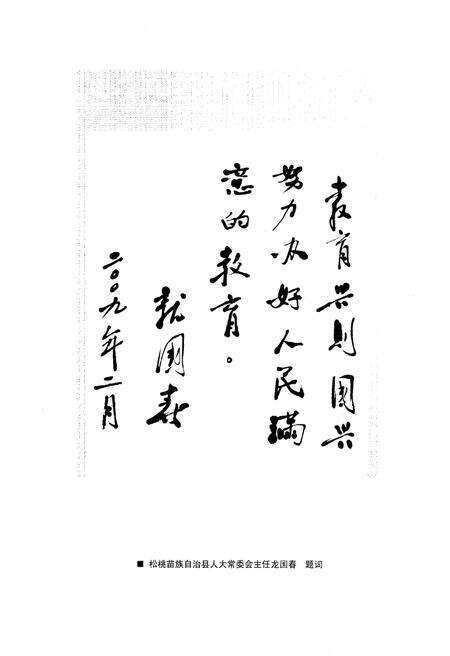 教育兴则国兴
努力办好人民满
意的教育。
龙国春
二〇〇九年二月
■ 松桃苗族自治县人大常委会主任龙国春 题词